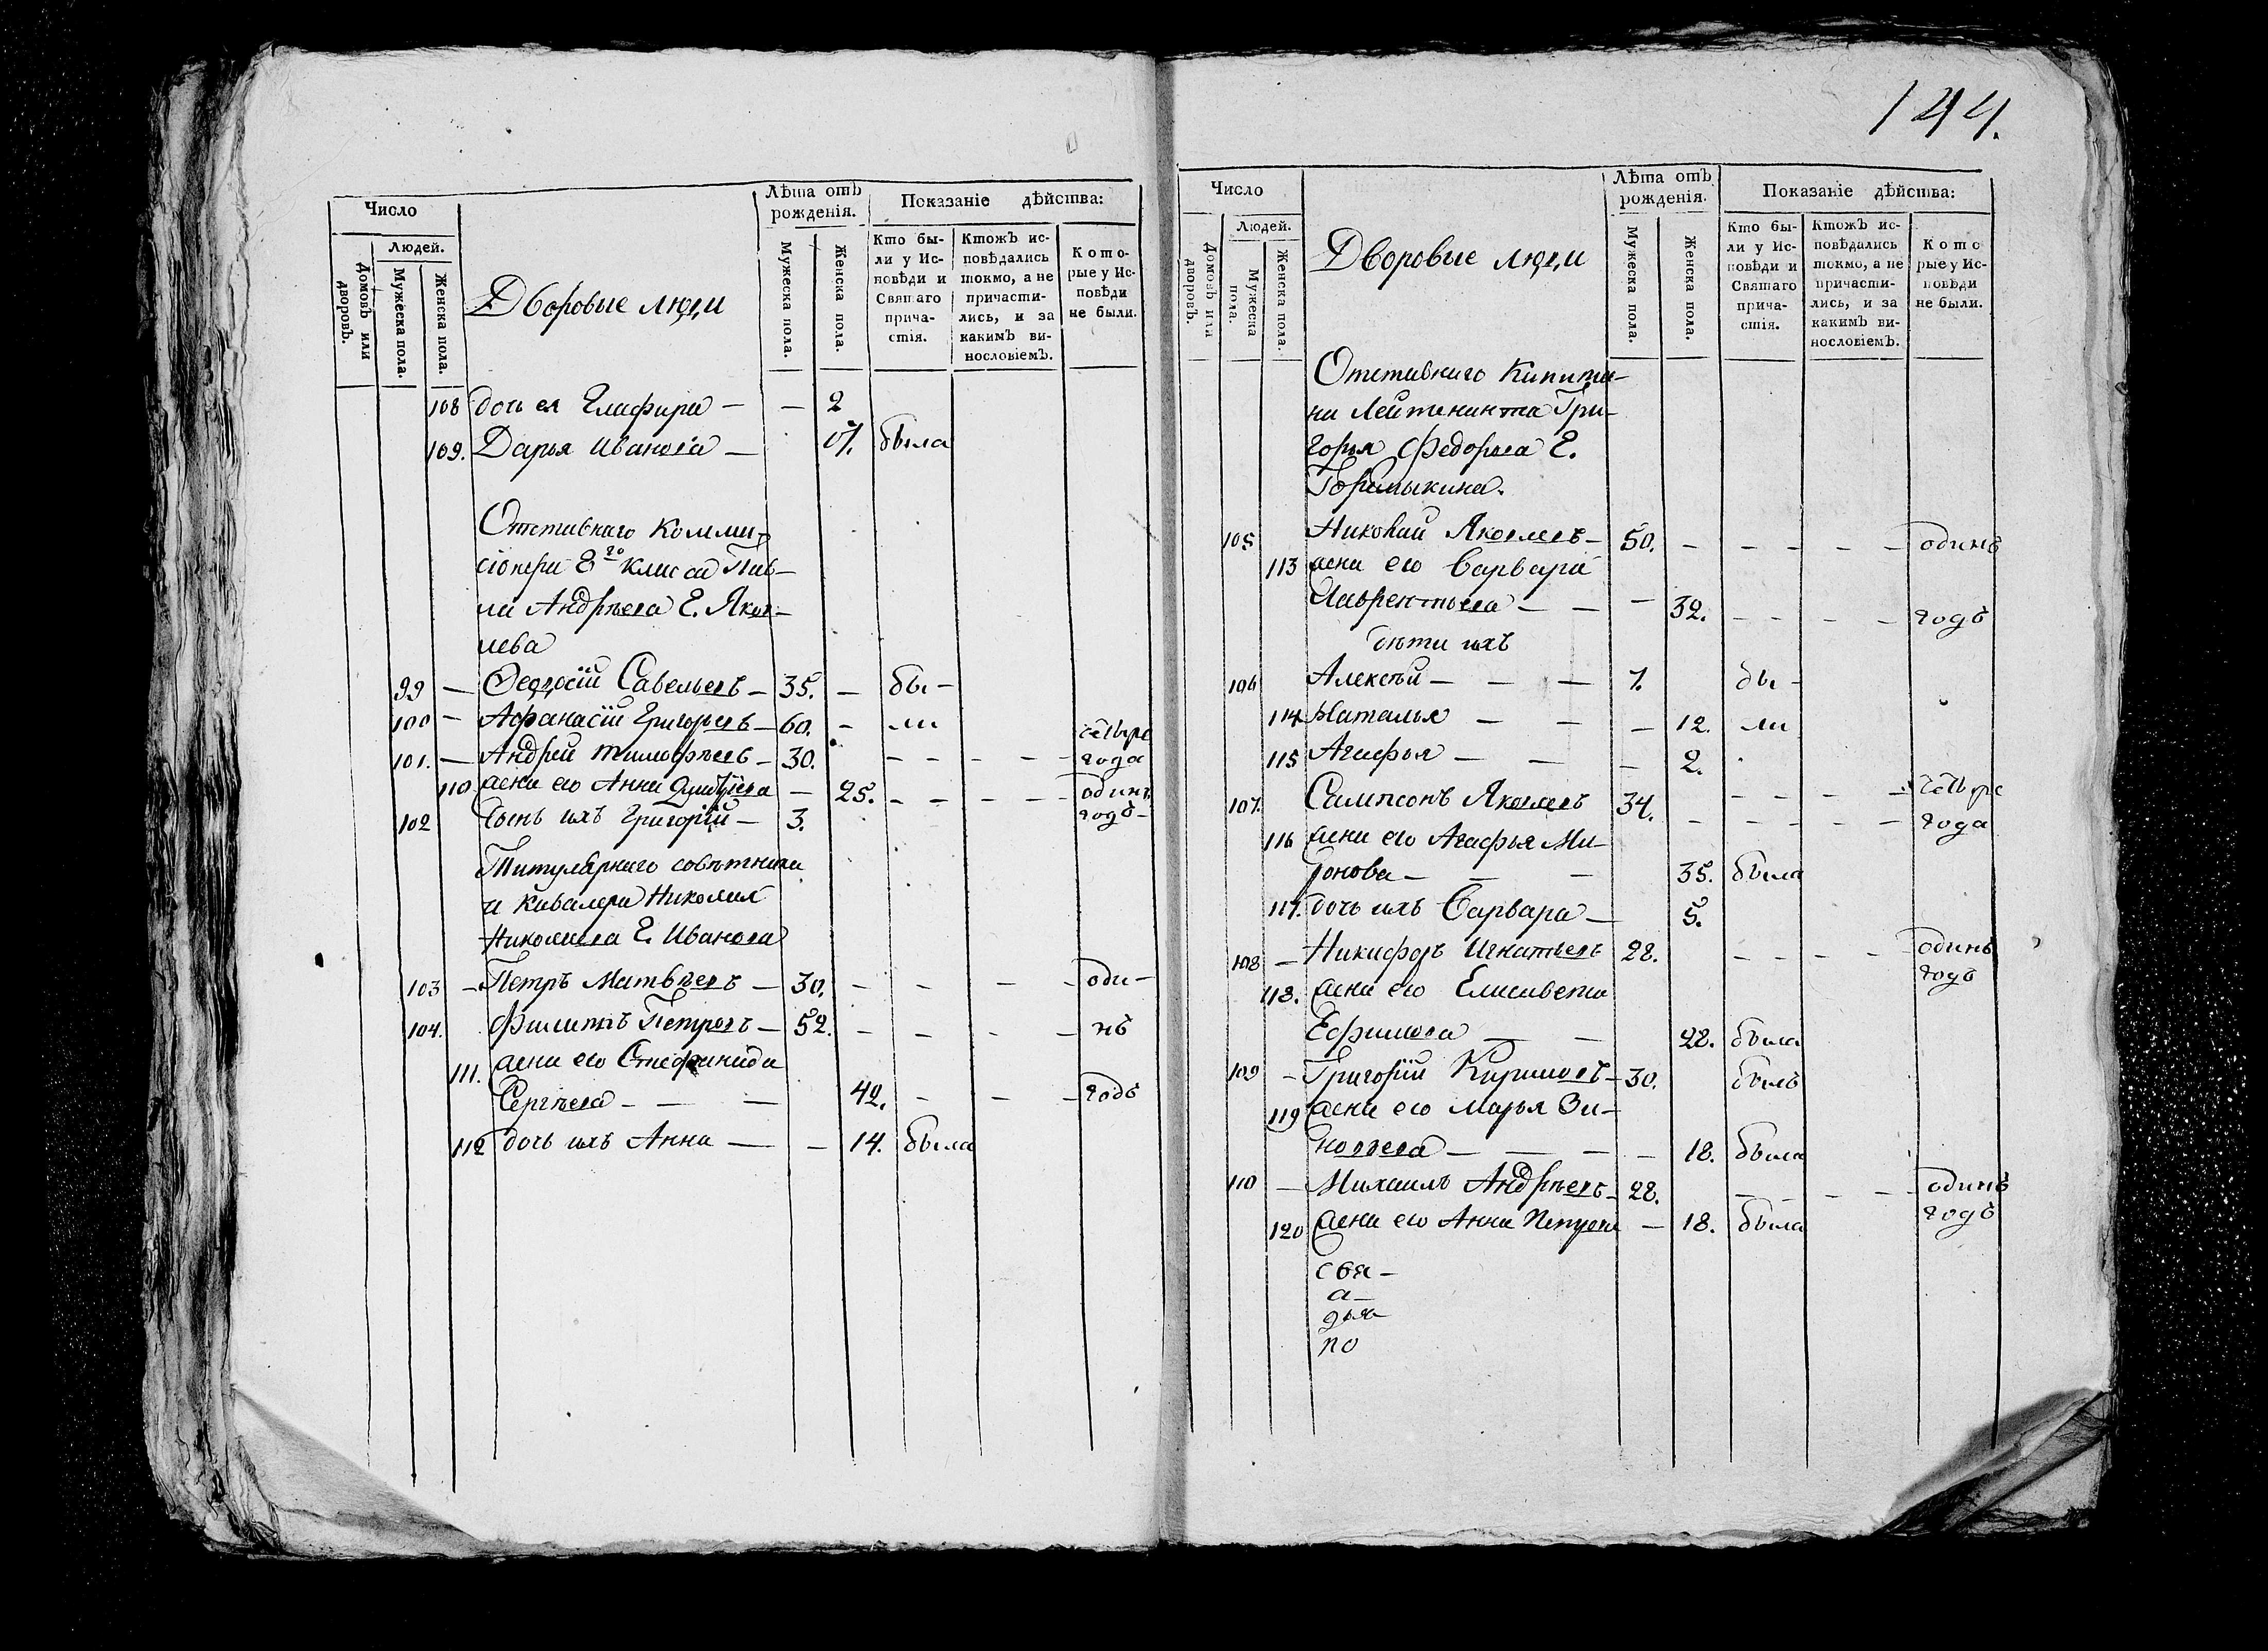 Число
Людей.
Домовъ или дворовъ.
Мужеска пола.
Женска пола.
Дворовые люди
Лѣта отъ рожденія.
Мужеска пола.
Женска пола.
Показаніе дѣйства:
Кто были у Исповѣди и Святаго причастія.
Ктожъ исповѣдались токмо, а не причастились, и за какимъ винословіемъ.
Которые у Исповѣди не были.
108 дочь ея Глафира — — 2
109. Дарья Иванова — была
Отставнаго Комми-
сіонера 8го класса Пав-
ла Андрѣева Г. Яков-
лева
99 — Ѳедосій Савельевъ — 35. — бы —
100 — Афанасій Григорьевъ — 60. — ли четыре
101. — Андрей Тимофѣевъ — 30. — — — — — года
110 жена его Анна — 25. — — — — — одинъ
102 Сынъ ихъ Григорій — 3. годъ —
Титулярнаго совѣтника
и Кавалера Николая
Николаева Г. Иванова
103 — Петръ Матвѣевъ — 30. — — — — оди —
104. Филиппъ Петровъ — 52. — — — — нъ
111. жена его Стефанида
Сергѣева — — — 42. — — — годъ
112 дочь ихъ Анна — — 14. была
144.
Число
Людей.
Домовъ или дворовъ.
Мужеска пола.
Женска пола.
Дворовые люди
Лѣта отъ рожденія.
Мужеска пола.
Женска пола.
Показаніе дѣйства:
Кто были у Исповѣди и Святаго причастія.
Ктожъ исповѣдались токмо, а не причастились, и за какимъ винословіемъ.
Которые у Исповѣди не были.
Отставнаго Капита-
на Лейтенанта Гри-
горья Федорова Г.
Горемыкина.
105 Николай Яковлевъ — 50. — — — — — одинъ
113 жена его Варвара
Лаврентьева — — — 32. — — — — годъ
дѣти ихъ
106 Алексѣй — — — 7. бы —
114 Наталья — — — 12. ли
115 Агафья — — — 2.
107. Сампсонъ Яковлевъ 34. — — — — четыре
116 жена его Агафья Ми- — — — — — года
ронова — — — 35. была
117. дочь ихъ Варвара — 5.
108 — Никифоръ Игнатьевъ 28. — — — — одинъ
118. жена его Елисавета годъ
Ефимова — — 22. была
109 — Григорій — 30. былъ
119 жена его Марья Зи-
новьева — — — — 18. была
110 — Михаилъ Андрѣевъ — 28. — — — — одинъ
120 жена его Анна Петрова — 18. была годъ
свя —
а —
дья
по